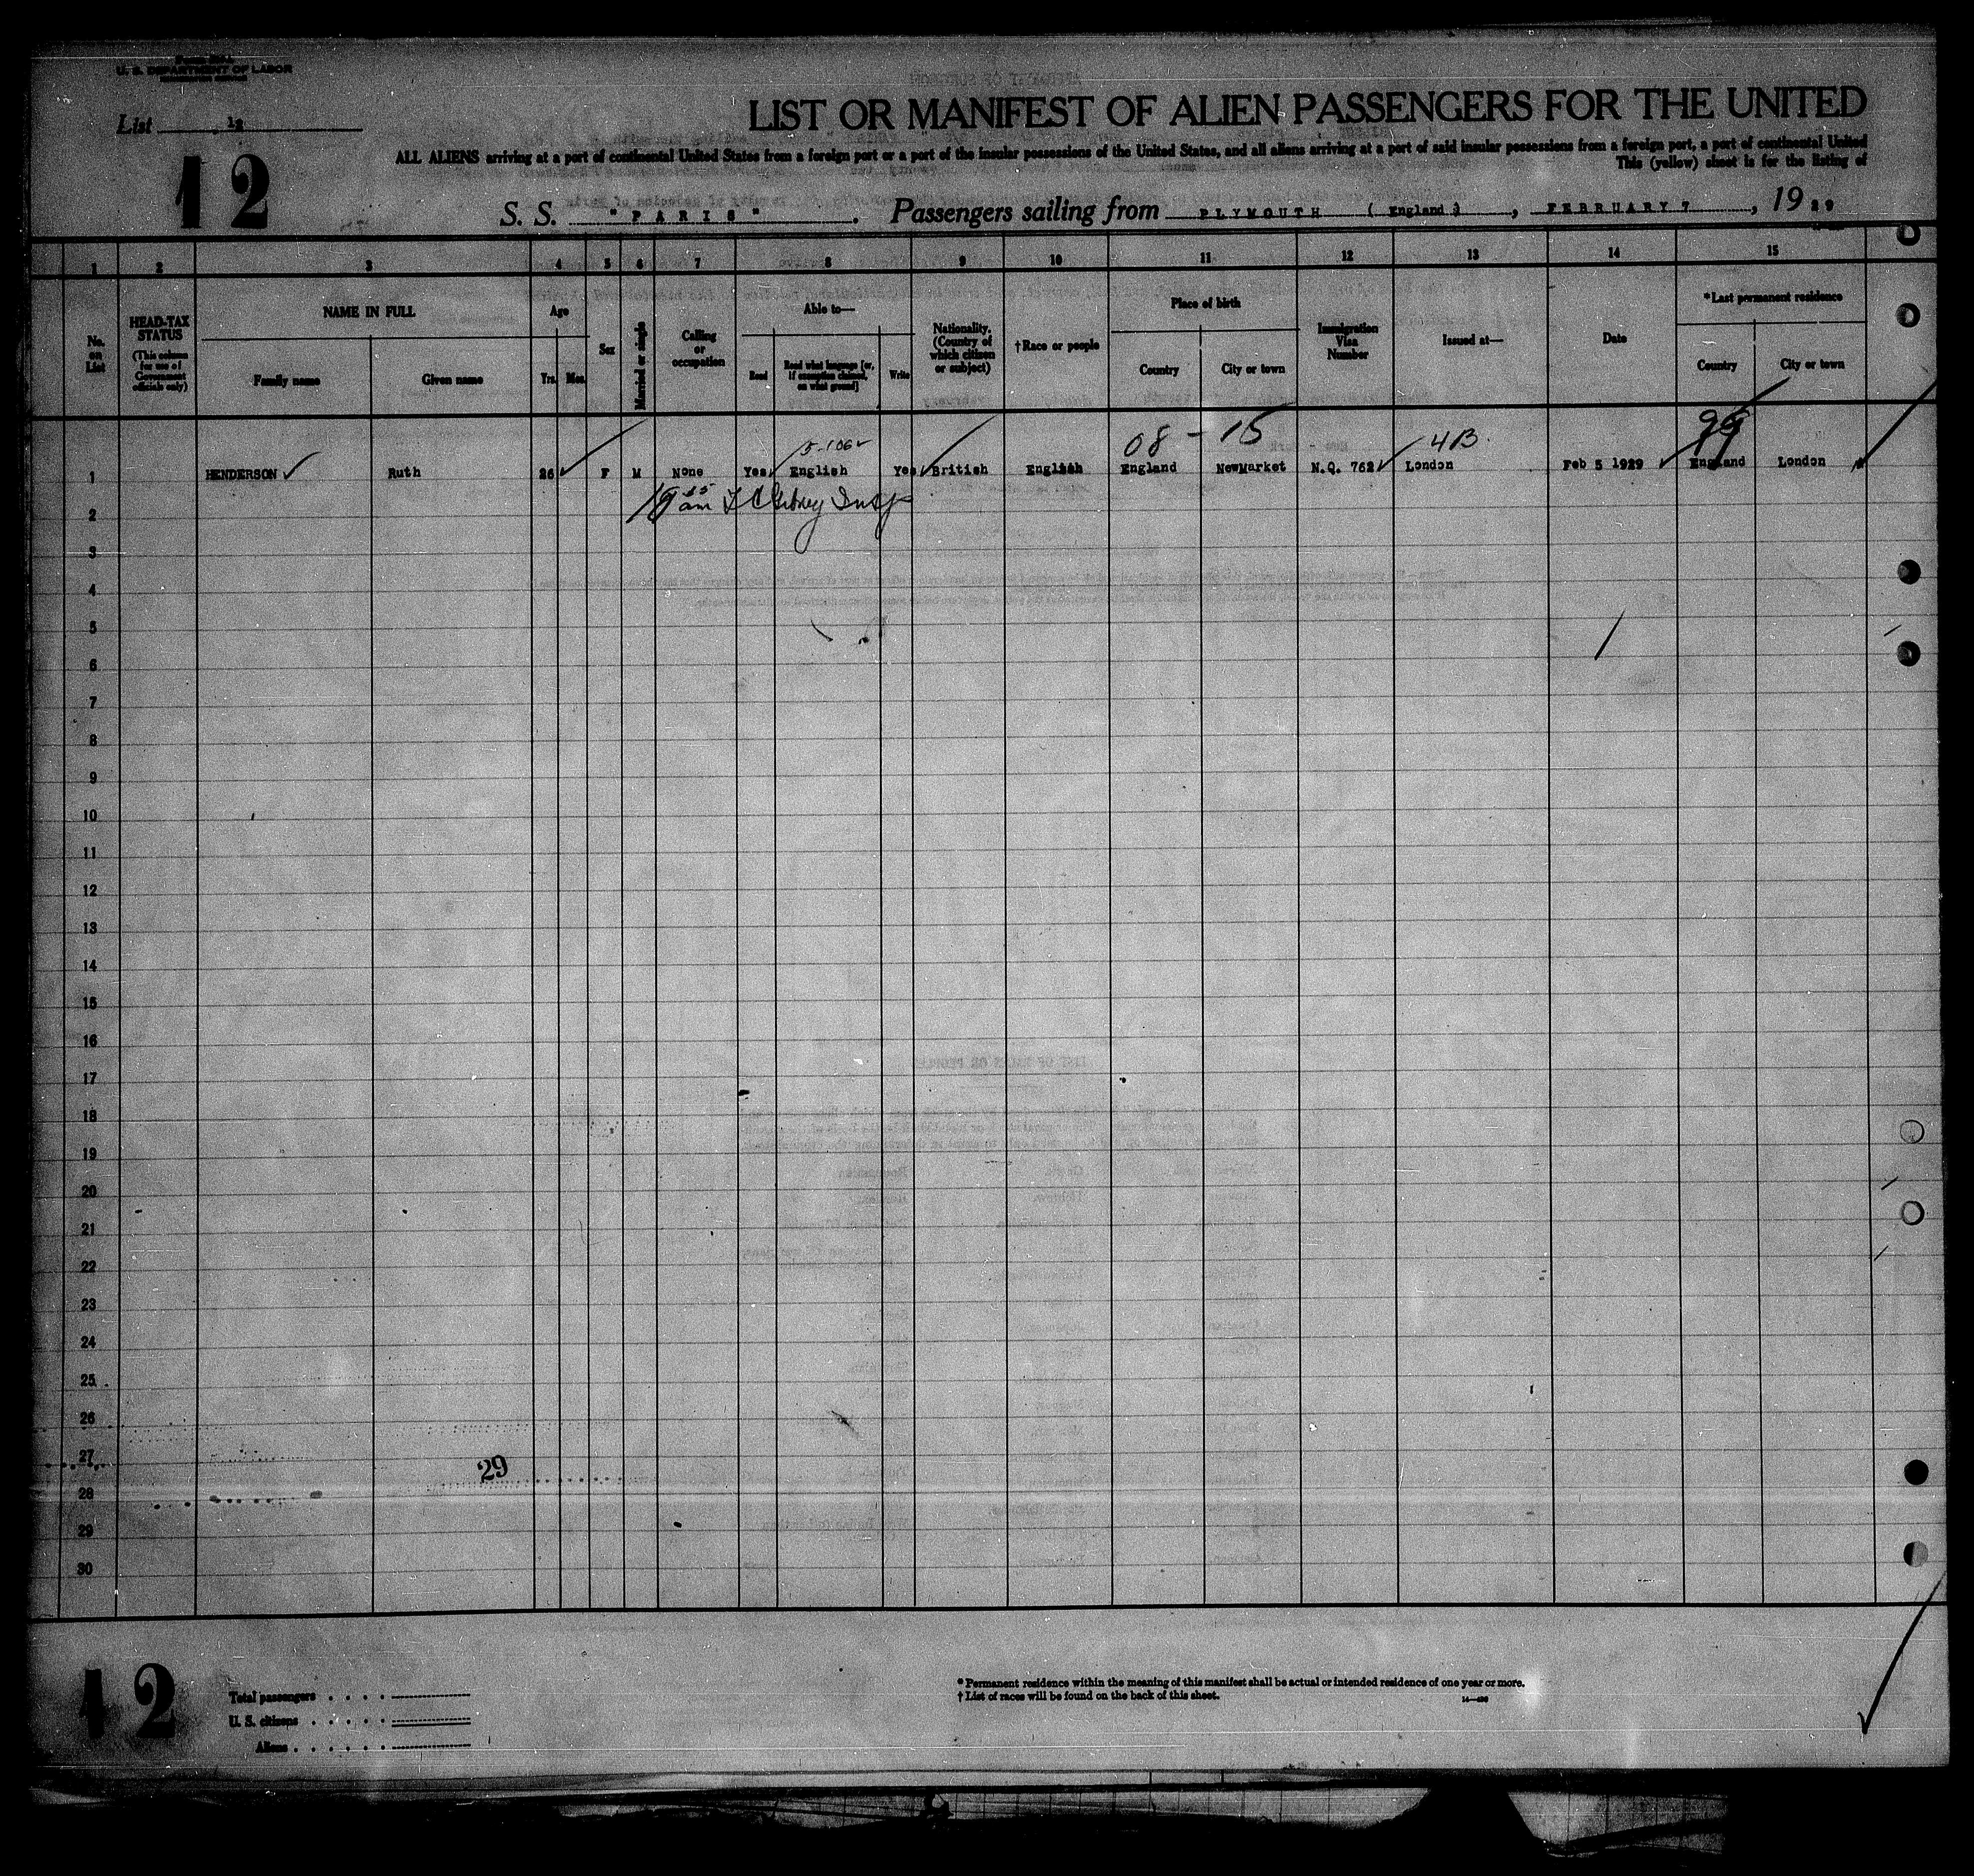 U. S. DEPARTMENT OF LABOR
List 12
LIST OR MANIFEST OF ALIEN PASSENGERS FOR THE UNITED
12
ALL ALIENS arriving at a port of continental United States from a foreign port or a port of the insular possessions of the United States, and all aliens arriving at a port of said insular possessions from a foreign port, a port of continental United
This (yellow) sheet is for the listing of
S. S. "PARIS". Passengers sailing from PLYMOUTH (England), FEBRUARY 7, 1929
1 2 3 4 5 6 7 8 9 10 11 12 13 14 15
No. on List
HEAD-TAX STATUS (This column for use of Government officials only)
NAME IN FULL
Family name
Given name
Age
Yrs.
Mos.
Sex
Married or single
Calling or occupation
Able to—
Read
Read what language [or, if exemption claimed, on what ground]
Write
Nationality. (Country of which citizen or subject)
†Race or people
Place of birth
Country
City or town
Immigration Visa Number
Issued at—
Date
*Last permanent residence
Country
City or town
08 - 15
4B.
99
1 HENDERSON Ruth 26 F M None Yes English Yes British English England NewMarket N.Q. 762 London Feb 5 1929 England London
2
3
4
5
6
7
8
9
10
11
12
13
14
15
16
17
18
19
20
21
22
23
24
25
26
27
29
28
29
30
12
Total passengers
U. S. citizens
Aliens
* Permanent residence within the meaning of this manifest shall be actual or intended residence of one year or more.
† List of races will be found on the back of this sheet.